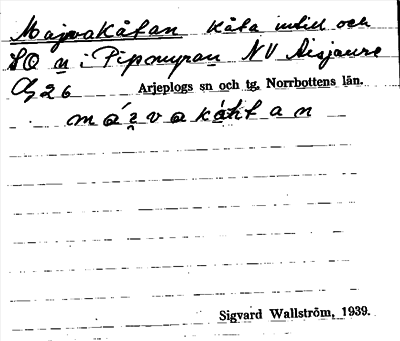 Majvakåtan kåta intill och
SO n i Pipmyran NV Aisjaure
26 Arjeplogs sn och tg, Norrbottens län.
Sigvard Wallström, 1939.